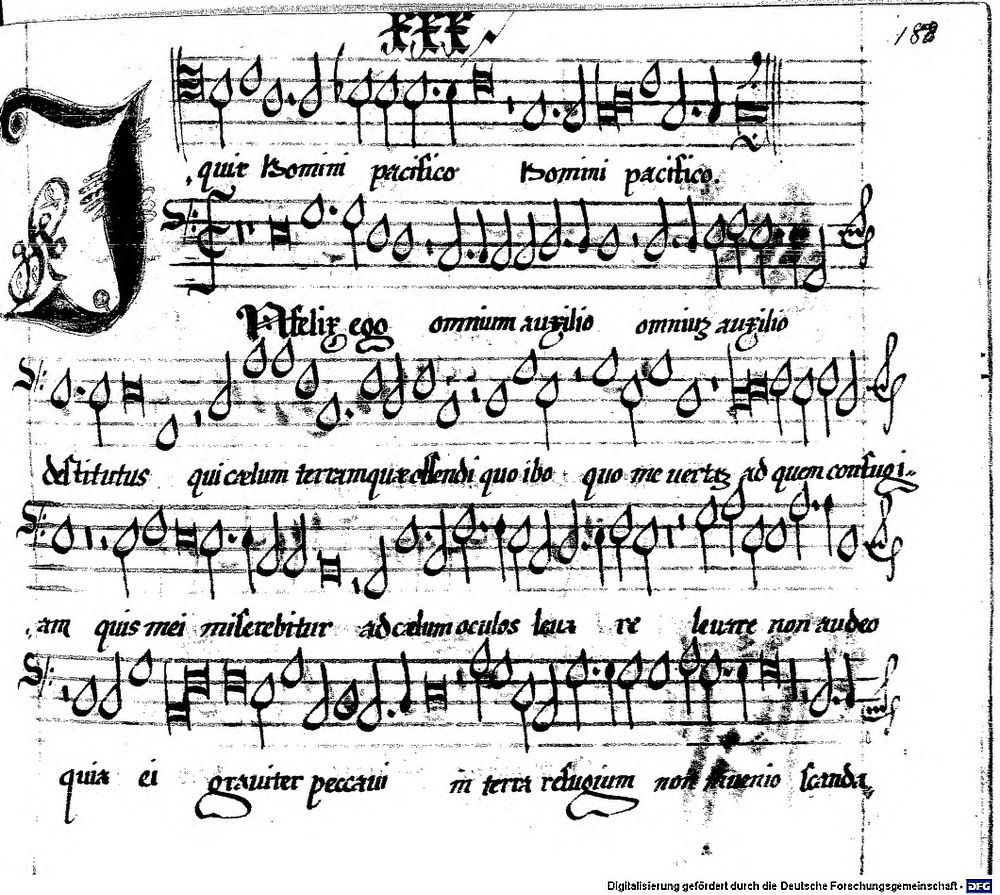 XXX
188
quie homini pacifico homini pacifico.
INfelix ego omnium auxilio omniuz auxilio
destitutus qui cælum terramquæ offendi quo ibo quo me vertaz ad quem confugi-
am quis mei miserebitur ad cælum oculos leua re leuare non audeo
quia ei grauiter peccaui in terra refugium non inuenio scanda
Digitalisierung gefördert durch die Deutsche Forschungsgemeinschaft - DFG